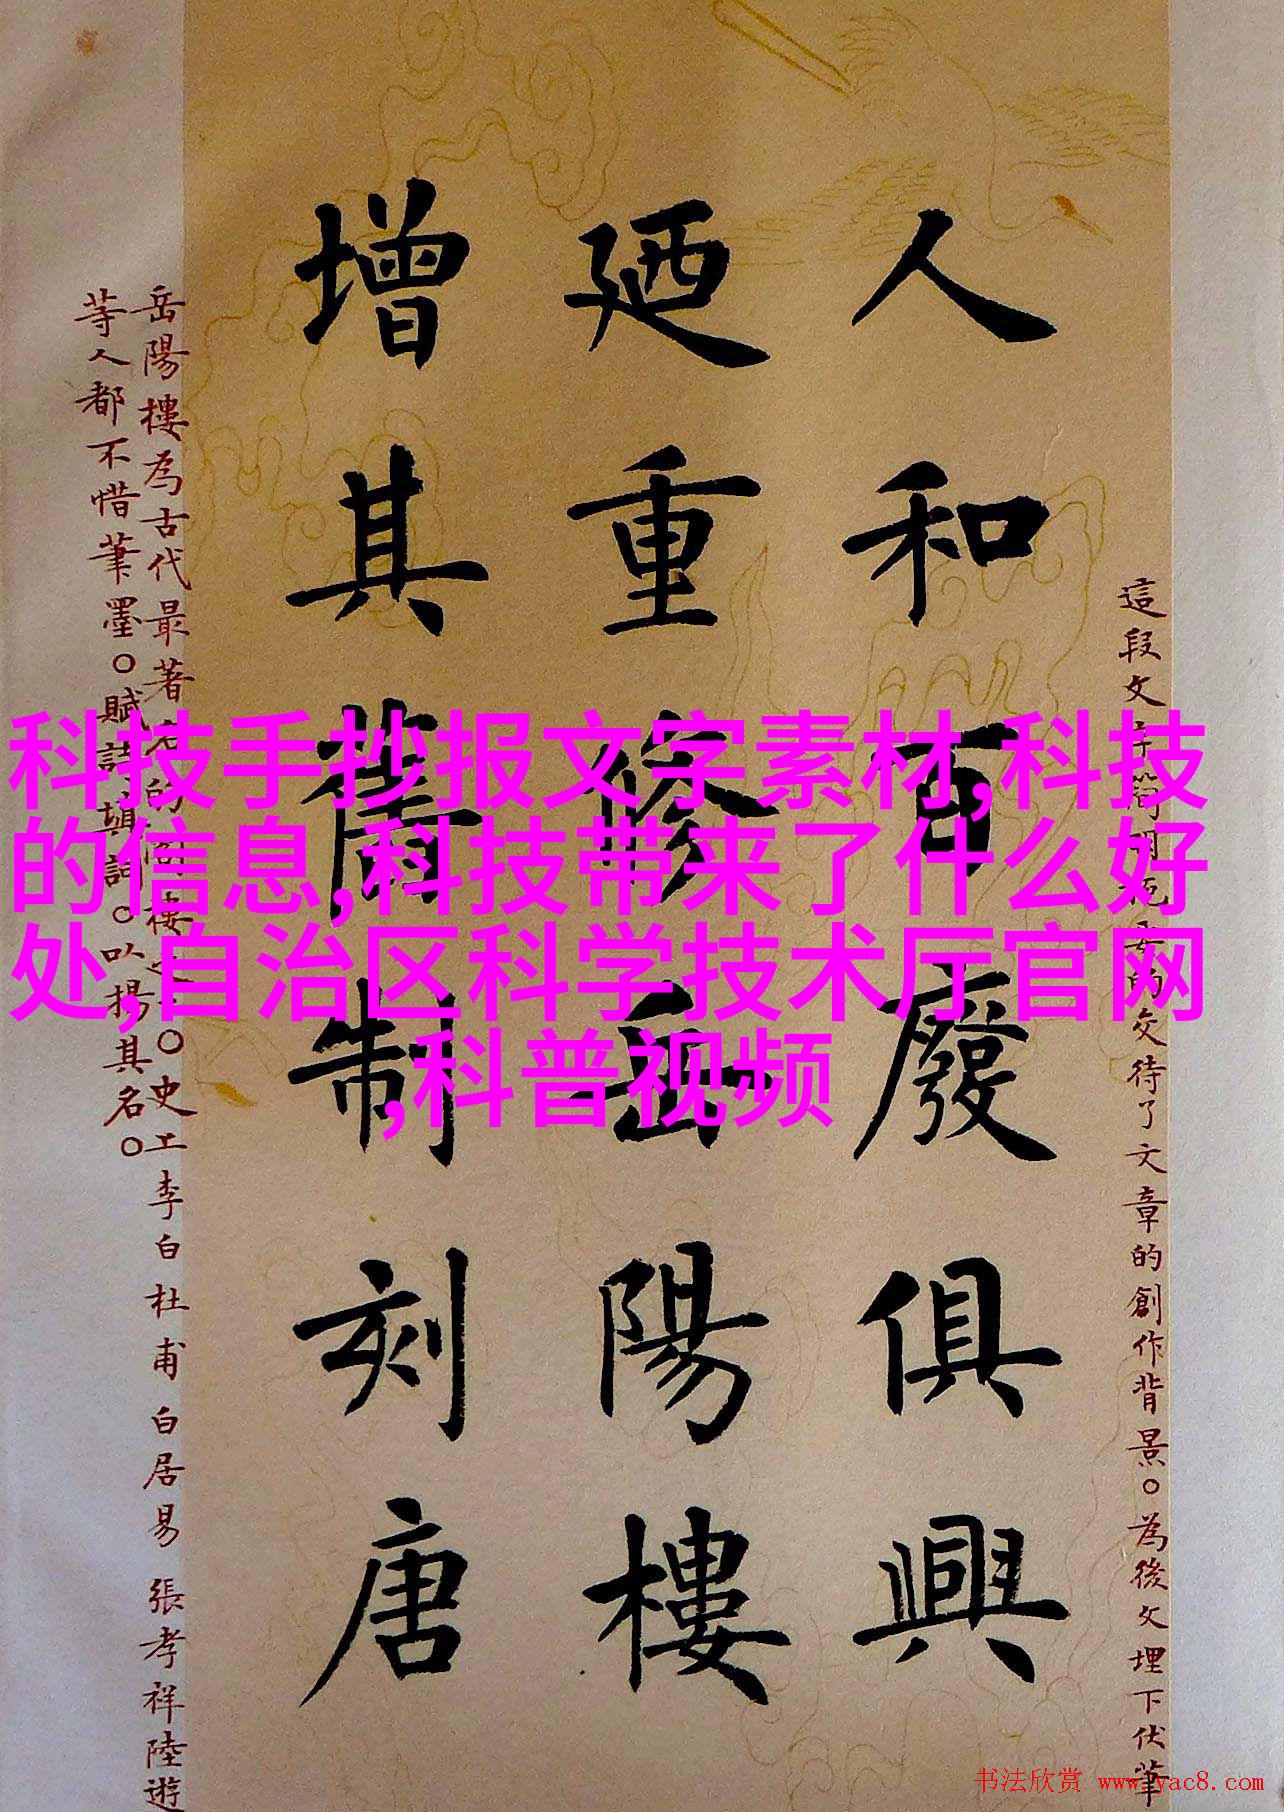 人和百廢俱興
廼重修岳陽樓
增其舊制刻唐
這段文字簡明扼要的交待了文章的創作背景。為後文埋下伏筆
岳陽樓為古代最著名的樓之一。史上李白 杜甫 白居易 張孝祥 陸遊
等人都不惜筆墨。賦詩填詞。以揚其名。
科技手抄报文字素材,科技
的信息,科技带来了什么好
处,自治区科学技术厅官网
,科普视频
书法欣赏 www.yac8.com